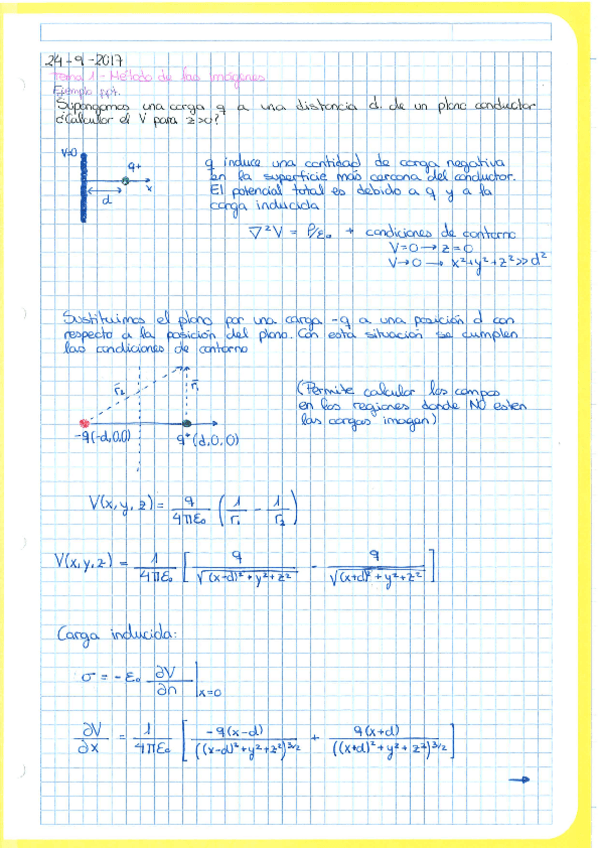 24-9-2017
Tema 1 - Método de las imágenes
Ejemplo ppt.
Supongamos una carga q a una distancia d. de un plano conductor
¿Calcular el V para z>0?
V=0
q+
x
d
q induce una cantidad de carga negativa
en la superficie más carcana del conductor.
El potencial total es debido a q y a la
carga inducida
∇²V = ρ/ε₀ + condiciones de contorno
V=0 → z=0
V→0 → x²+y²+z²>>d²
Sustituimos el plano por una carga -q a una posición d con
respecto a la posición del plano. Con esta situación se cumplen
las condiciones de contorno
r̄₂ r̄₁
-q(-d,0,0) q⁺(d,0,0)
(Permite calcular los campos
en las regiones donde NO esten
las cargas imagen)
V(x,y,z) = q/4πε₀ (1/r₁ - 1/r₂)
V(x,y,z) = 1/4πε₀ [q/√((x-d)²+y²+z²) - q/√((x+d)²+y²+z²)]
Carga inducida:
σ = -ε₀ ∂V/∂n |x=0
∂V/∂x = 1/4πε₀ [-q(x-d)/((x-d)²+y²+z²)^3/2 + q(x+d)/((x+d)²+y²+z²)^3/2]
→